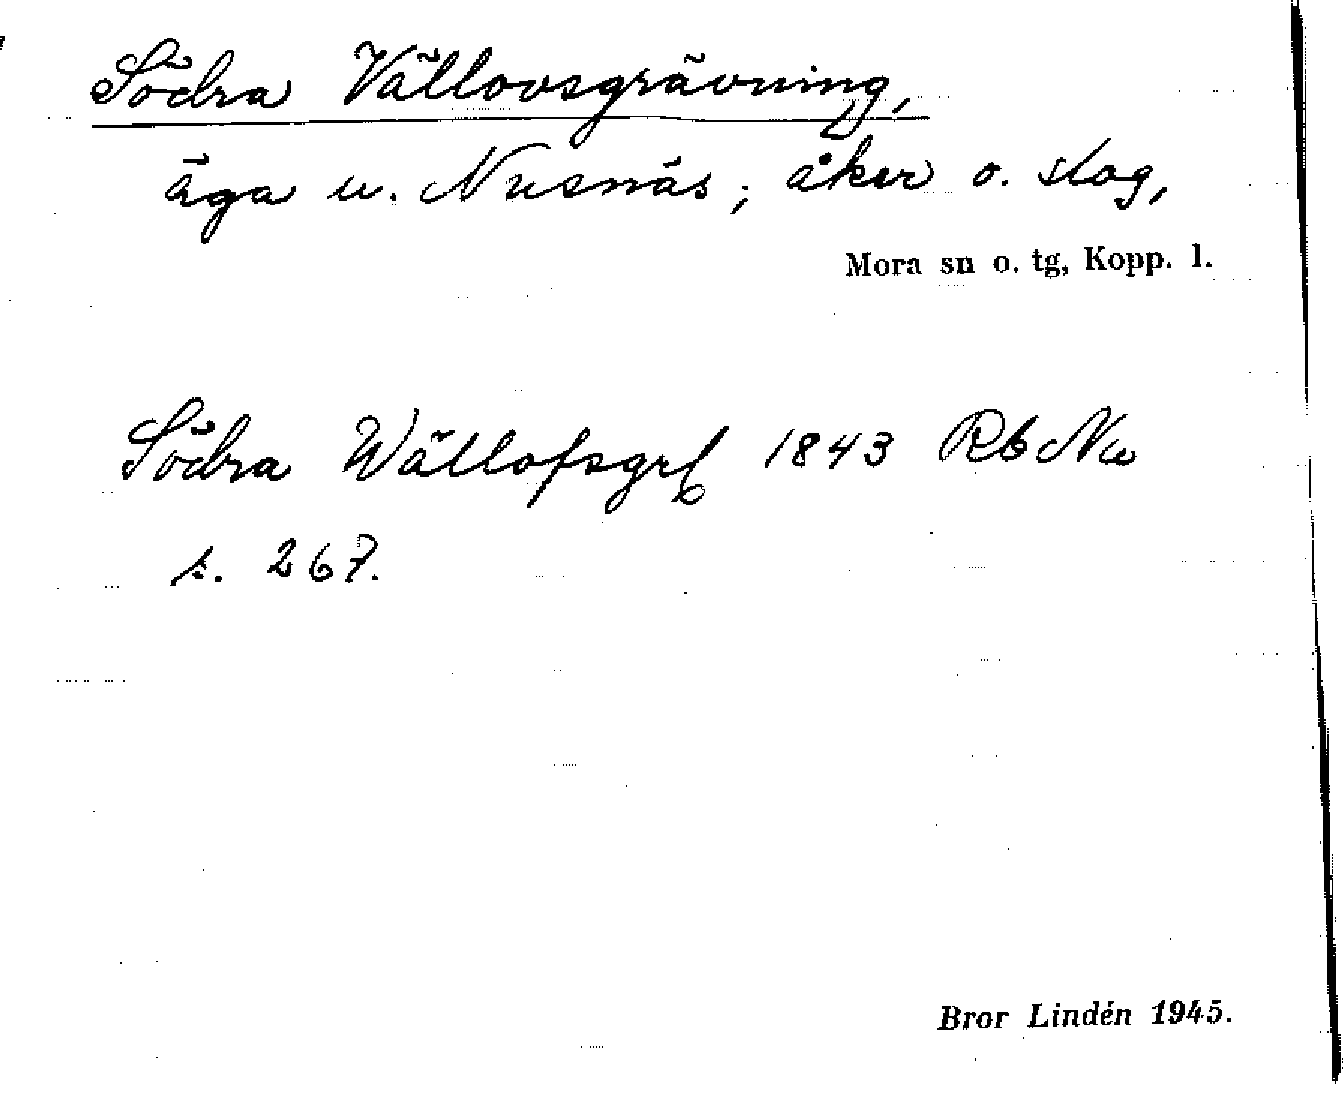 Södra Vällovsgrävning,
äga u. Nusnäs; åker o. skog,
Mora sn o. tg, Kopp. l.
Södra Wällofsgrf 1843 Rb Nu
s. 267.
Bror Lindén 1945.